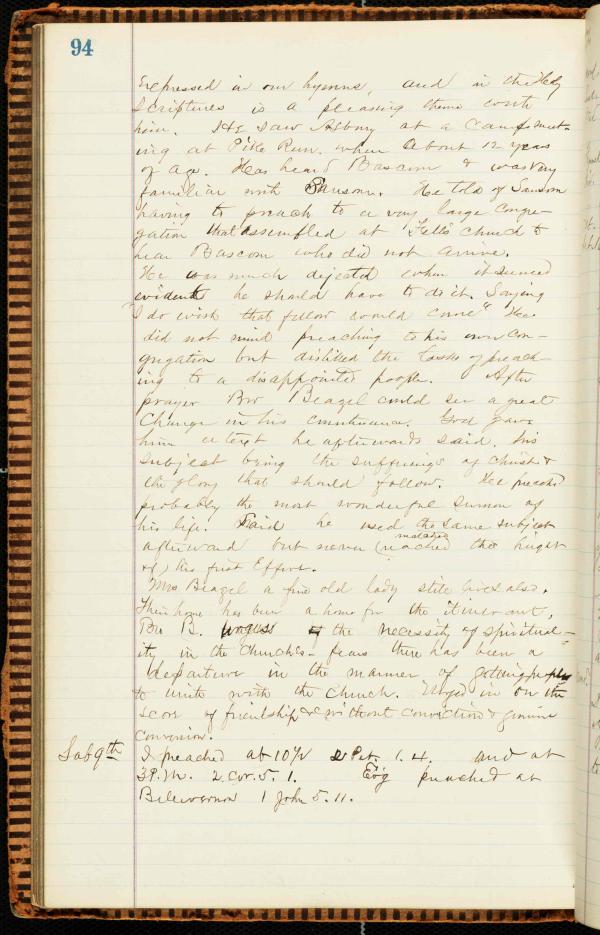 94
Expressed in our hymns, and in the Holy
Scriptures is a pleasing theme with
him. He saw Asbury at a Camp meet-
ing at Pike Run. when about 12 years
of age. Has heard Bascom & was very
familiar with Sansom. He told of Sansom
having to preach to a very large congre-
gation that assembled at Fells Church to
hear Bascom who did not arrive.
He was much dejected when it seemed
evident he should have to do it. Saying
"I do wish that fellow would come" He
did not mind preaching to his own con-
gregation but disliked the task of preach-
ing to a disappointed people. After
prayer Bro Beazel could see a great
Change in his countenance. God gave
him a text he afterwards said. his
subject being the sufferings of Christ &
the glory that should follow. He preached
probably the most wonderful sermon of
his life. Said he used the same subject
afterward but never reached the hight
of his first Effort.
Mrs Beazel a fine old lady still lives also.
Their home has been a home for the itinerant.
Bro B. the necessity of spiritual-
ity in the Churches - fears there has been a
departure in the manner of getting people
to unite with the Church. in on the
score of friendship & without conviction & genuine
conversion.
Sab 9th I preached at 10½ 2 Pet. 1.4. and at
3 P.M. 2 Cor. 5.1. Ev'g preached at
Bellevernon 1 John 5.11.